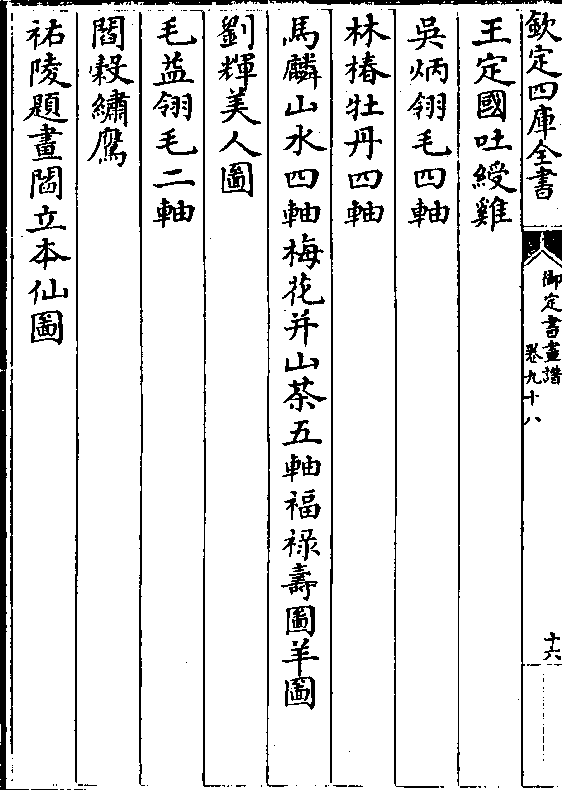 欽定四庫全書
御定書畫譜
卷九十八
十六
王定國吐綬雞
吳炳翎毛四軸
林椿牡丹四軸
馬麟山水四軸梅花并山茶五軸福祿壽圖羊圖
劉輝美人圖
毛益翎毛二軸
閻穀繡鷹
祐陵題畫閻立本仙圖